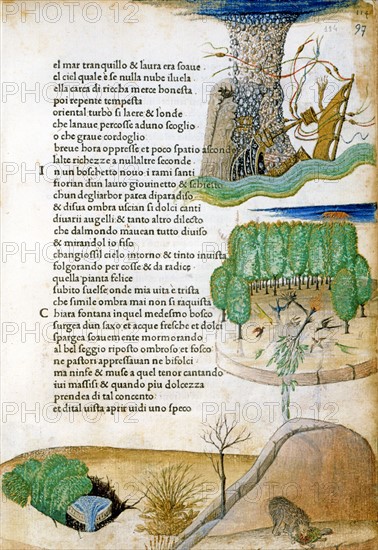 114
97
el mar tranquillo & laura era soaue
el ciel quale e se nulla nube iluela
ella carca di riccha merce honesta
poi repente tempesta
oriental turbo si laere & londe
che lanaue percosse aduno scoglio
o che graue cordoglio
breue hora oppresse et poco spatio asconde
lalte richezze a nullaltre seconde
I n un boschetto nouo i rami santi
fiorian dun lauro giouinetto & schietto
chun degliarbor parea diparadiso
& disua ombra uscian si dolci canti
diuarii augelli & tanto altro dilecto
che dalmondo mauean tutto diuiso
& mirandol io fiso
changiossil cielo intorno & tinto inuista
folgorando per cosse & da radice
quella pianta felice
subito suelse onde mia uita e trista
che simile ombra mai non si raquista
C hiara fontana inquel medesmo bosco
surgea dun saxo et acque fresche et dolci
spargea soauemente mormorando
al bel seggio riposto ombroso et fosco
ne pastori appressauan ne bifolci
ma ninfe & muse a quel tenor cantando
iui massisi & quando piu dolcezza
prendea di tal concento
et dital uista aprir uidi uno speco
PHOTO12